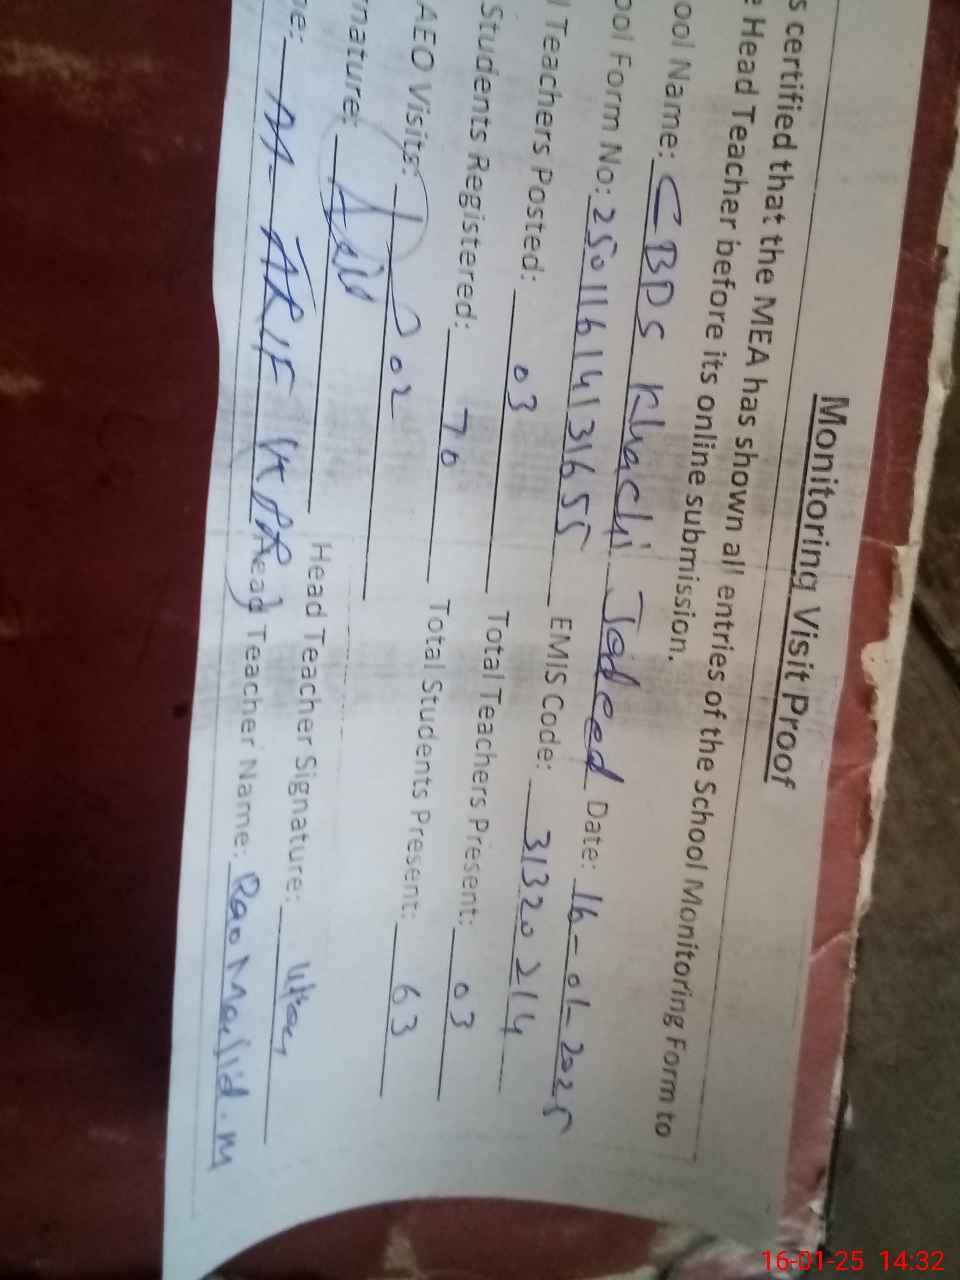 Monitoring Visit Proof
s certified that the MEA has shown all entries of the School Monitoring Form to
e Head Teacher before its online submission.
ool Name: CBDS Khachi Jadeed Date: 16-01-2025
ool Form No: 250116141431655 EMIS Code: 31320214
l Teachers Posted: 03 Total Teachers Present: 03
Students Registered: 70 Total Students Present: 63
AEO Visits: 02
nature: Head Teacher Signature:
me: M. ARIF Head Teacher Name: Rao Majid. M
16-01-25 14:32